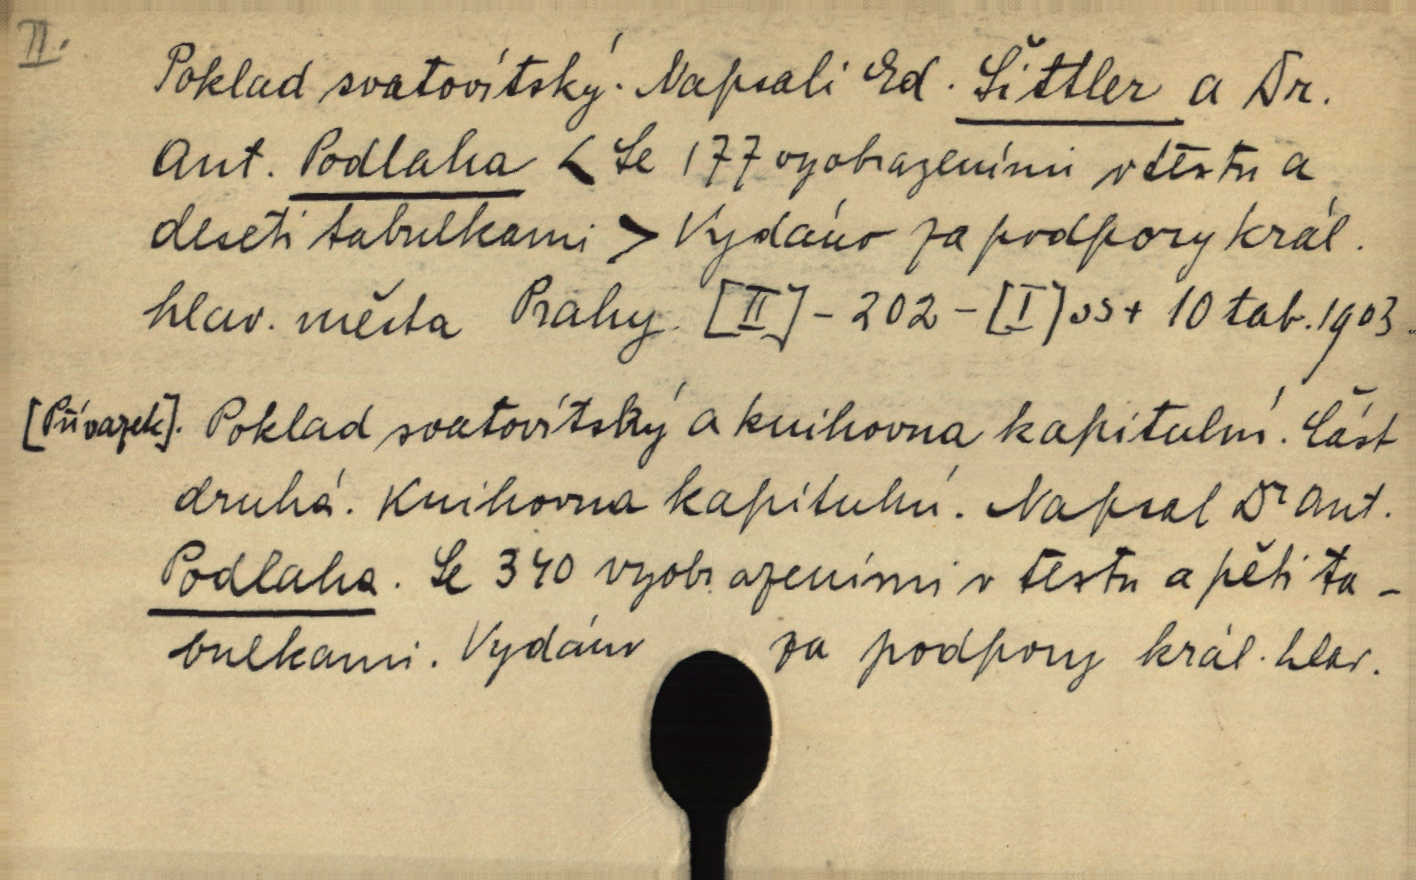 II.
Poklad svatovítský. Napsali Ed. Šittler a Dr.
Ant. Podlaha < Se 177 vyobrazeními v textu a
deseti tabulkami > Vydáno za podpory král.
hlav. města Prahy. [II] - 202 - [I] ss + 10 tab. 1903.
[Přívazek]. Poklad svatovítský a knihovna kapitulní. Část
druhá. Knihovna kapitulní. Napsal Dr Ant.
Podlaha. Se 340 vyobrazeními v textu a pěti ta-
bulkami. Vydáno za podpory král. hlav.